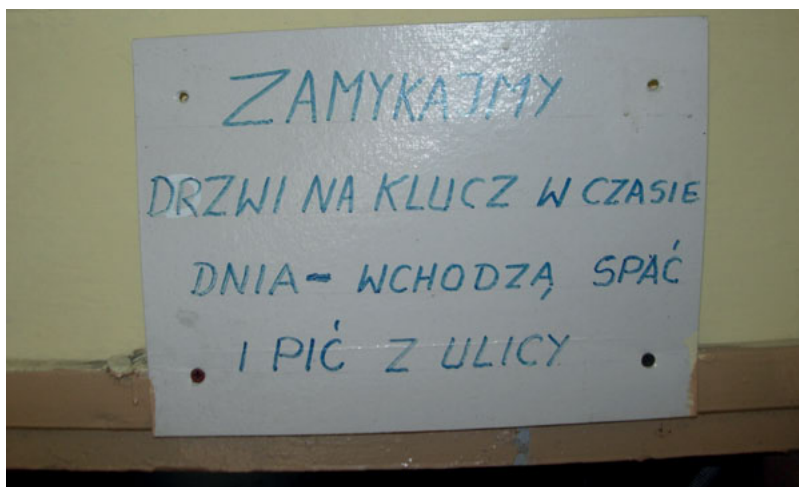 ZAMYKAJMY
DRZWI NA KLUCZ W CZASIE
DNIA - WCHODZĄ SPAĆ
I PIĆ Z ULICY